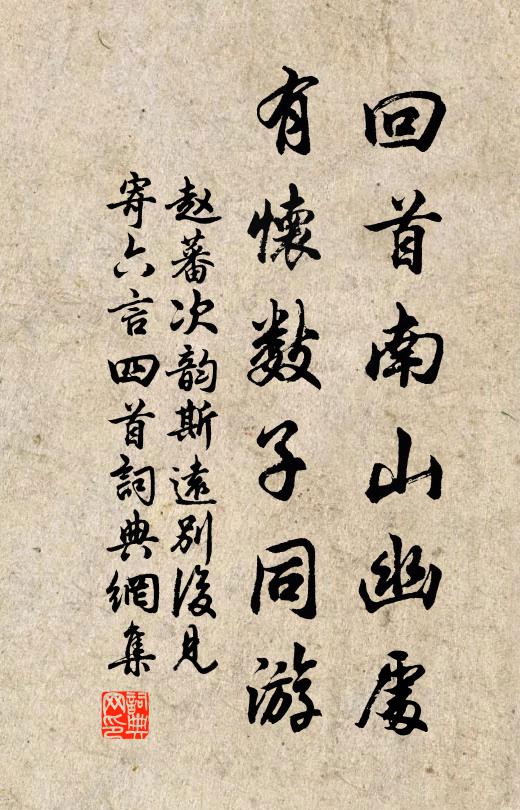 回首南山幽處
有懷數子同游
赵蕃次韵斯遠别後見
寄六言四首詞典網集
詞典网印